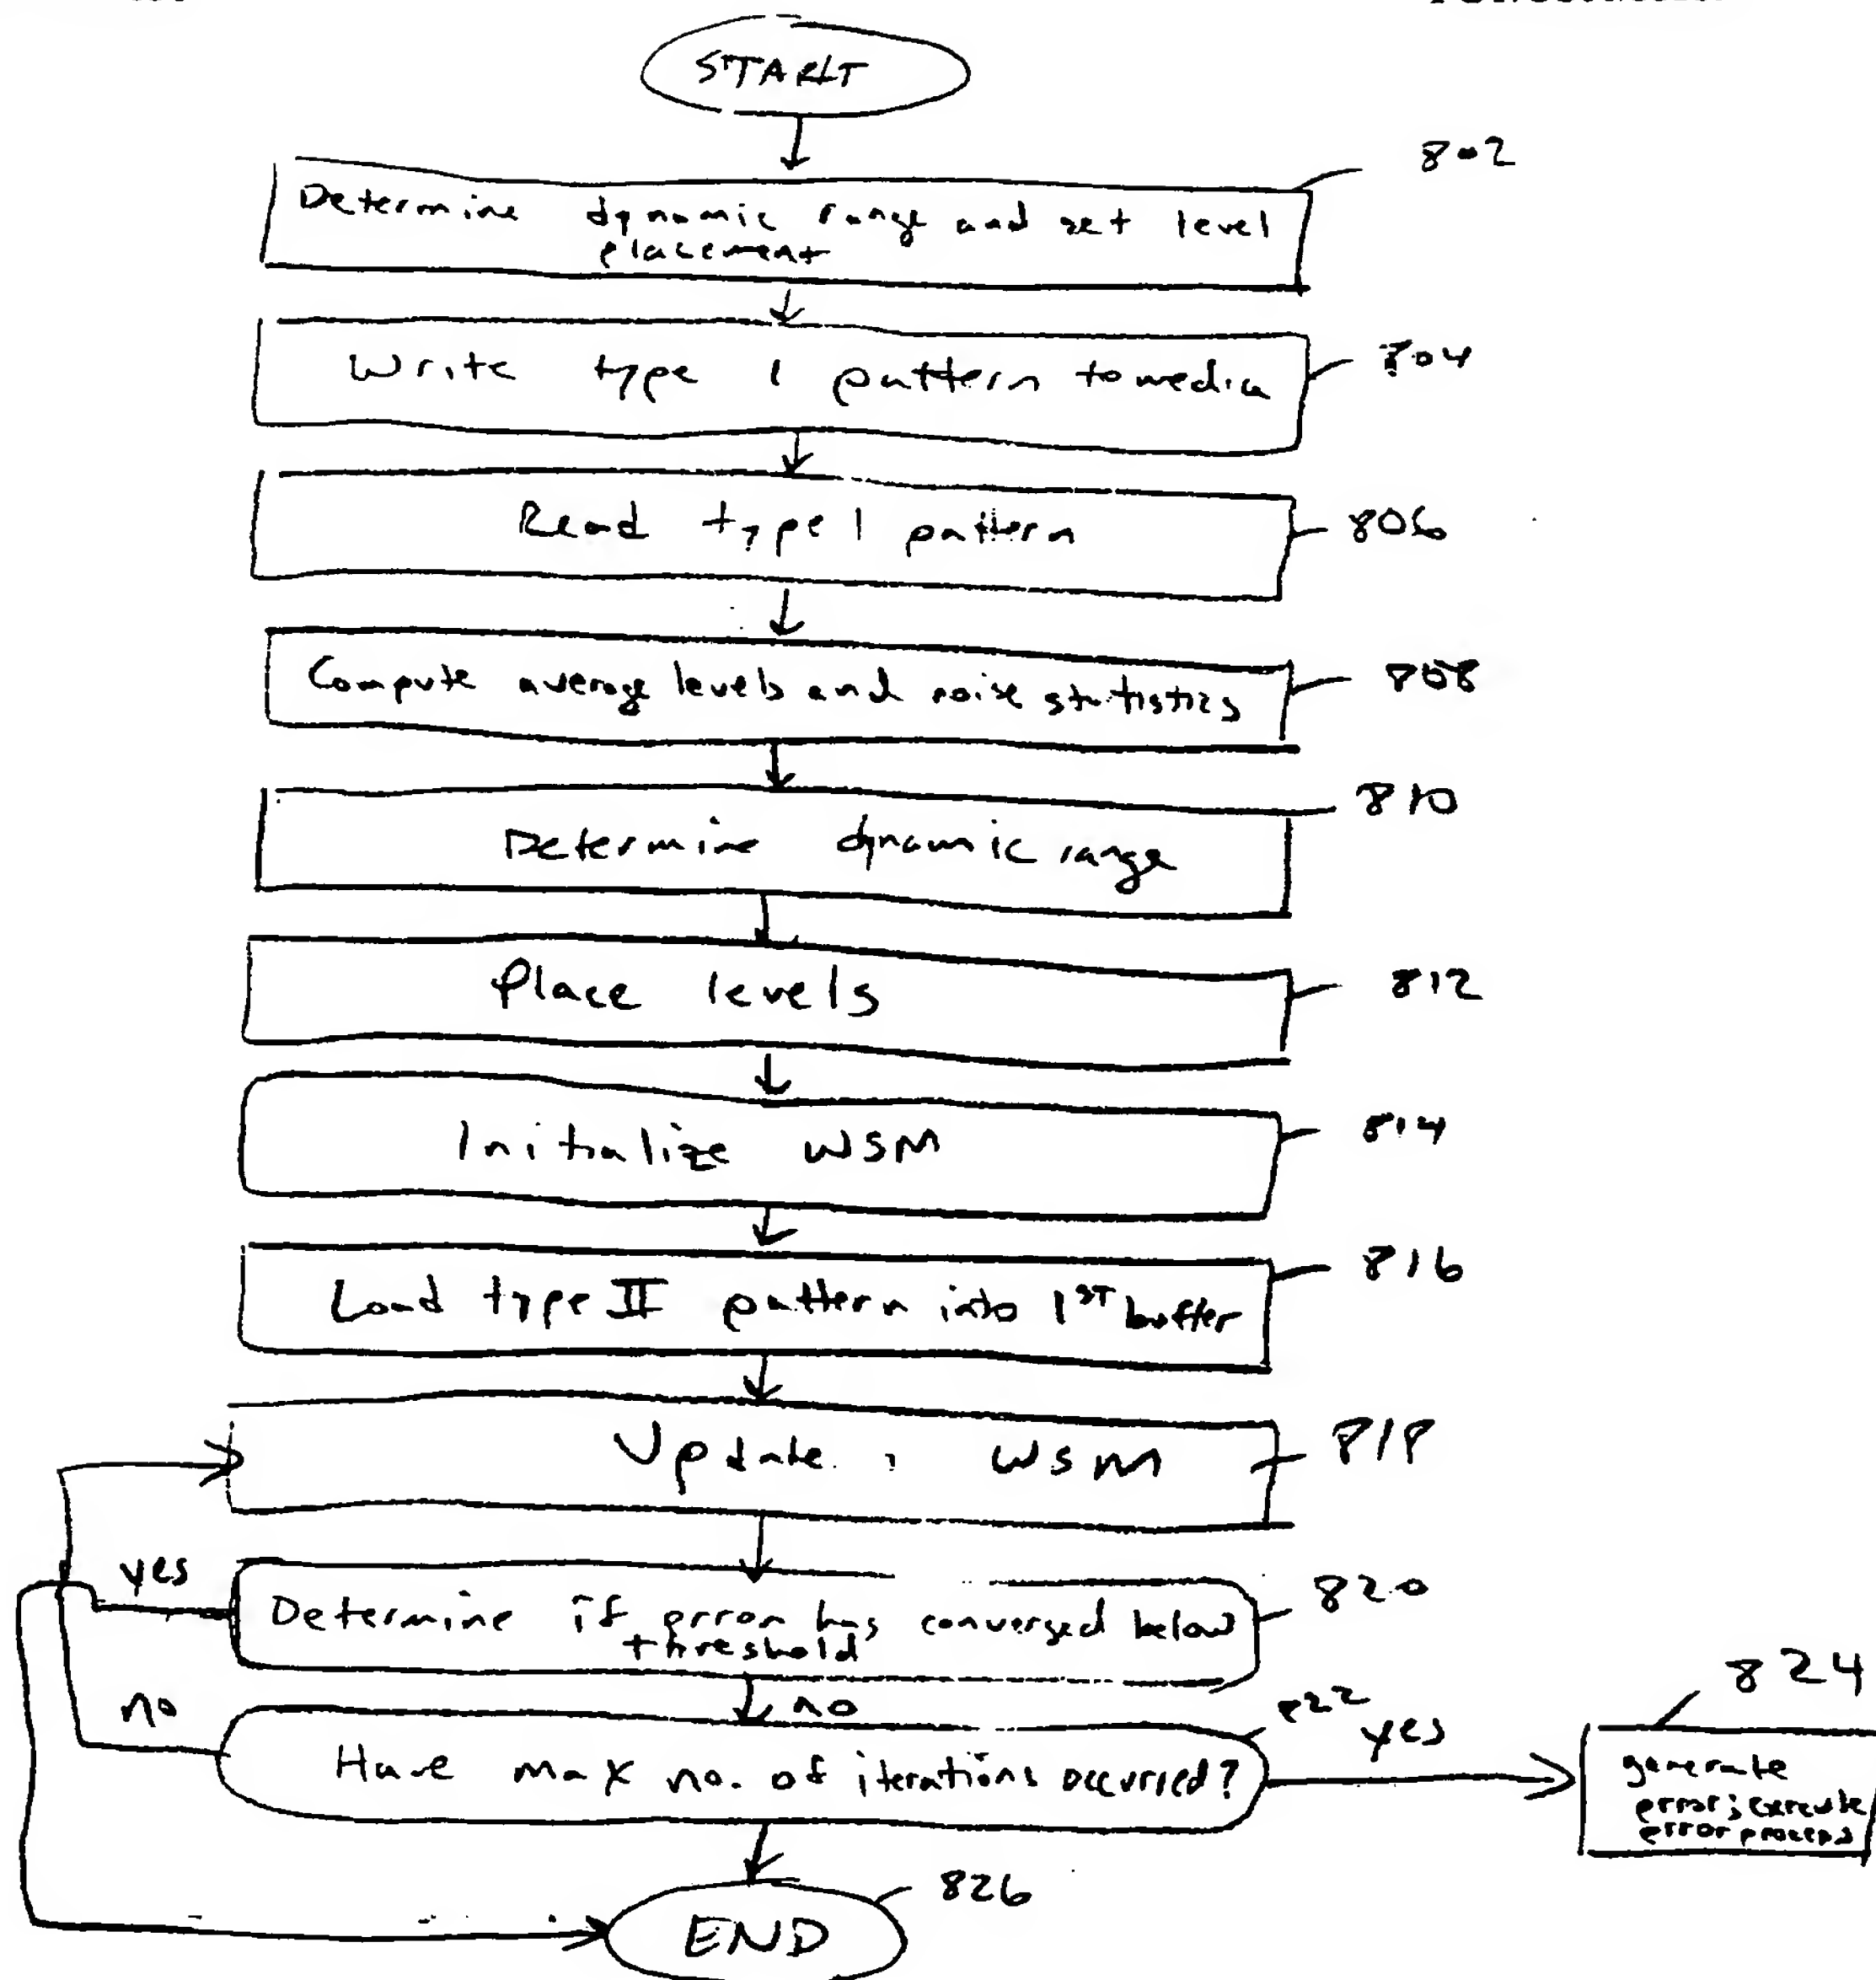 START
802
Determine dynamic range and set level
placement
804
Write type 1 pattern to media
Read type 1 pattern
806
Compute average levels and noise statistics
808
810
Determine dynamic range
Place levels
812
Initialize WSM
814
816
Load type II pattern into 1ST buffer
Update WSM
818
yes
820
Determine if error has converged below
threshold
824
no
no
822
yes
Have max no. of iterations occurried?
generate
error; execute
error process
826
END